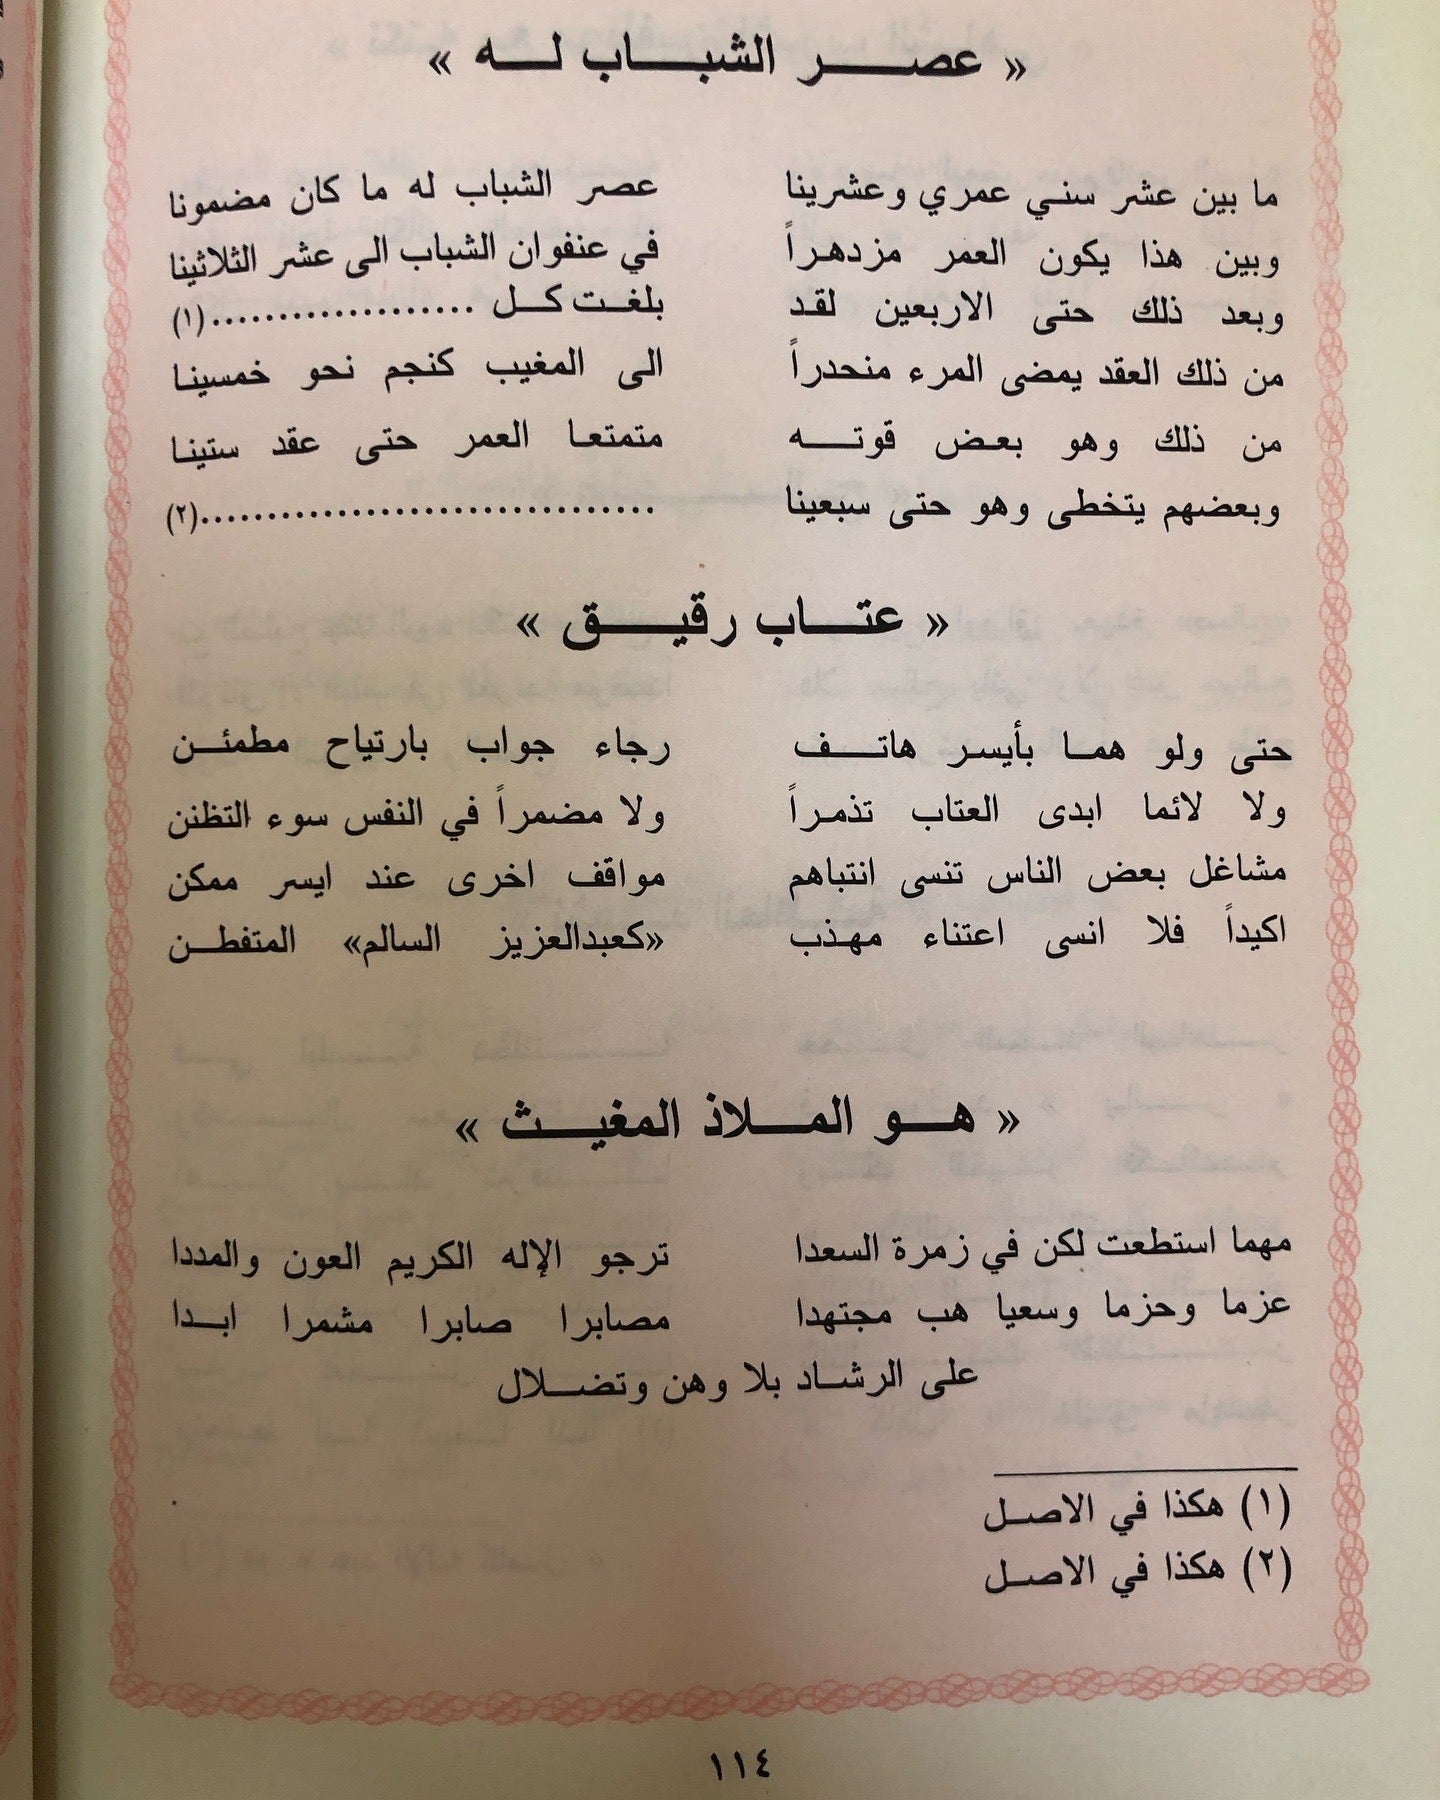 « عصر الشباب له »
ما بين عشر سني عمري وعشرينا عصر الشباب له ما كان مضمونا
وبين هذا يكون العمر مزدهراً في عنفوان الشباب الى عشر الثلاثينا
وبعد ذلك حتى الاربعين لقد بلغت كل ....................(١)
من ذلك العقد يمضى المرء منحدراً الى المغيب كنجم نحو خمسينا
من ذلك وهو بعض قوته متمتعا العمر حتى عقد ستينا
وبعضهم يتخطى وهو حتى سبعينا ...................................(٢)
« عتاب رقيق »
حتى ولو هما بأيسر هاتف رجاء جواب بارتياح مطمئن
ولا لائما ابدى العتاب تذمراً ولا مضمراً في النفس سوء التظنن
مشاغل بعض الناس تنسى انتباهم مواقف اخرى عند ايسر ممكن
اكيداً فلا انسى اعتناء مهذب «كعبدالعزيز السالم» المتفطن
« هو الملاذ المغيث »
مهما استطعت لكن في زمرة السعدا ترجو الإله الكريم العون والمددا
عزما وحزما وسعيا هب مجتهدا مصابرا صابرا مشمرا ابدا
على الرشاد بلا وهن وتضلال
(١) هكذا في الاصل
(٢) هكذا في الاصل
١١٤